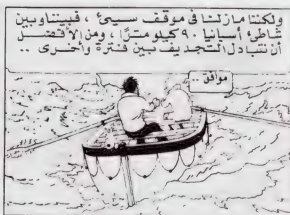 ولكننا مازلنا فى موقف سيئ ، فبيننا وبين
شاطئ أسبانيا ٩٠ كيلو مترًا ، ومن الأفضل
أن نتبادل التجديف بين فترة وأخرى ..
موافق ..